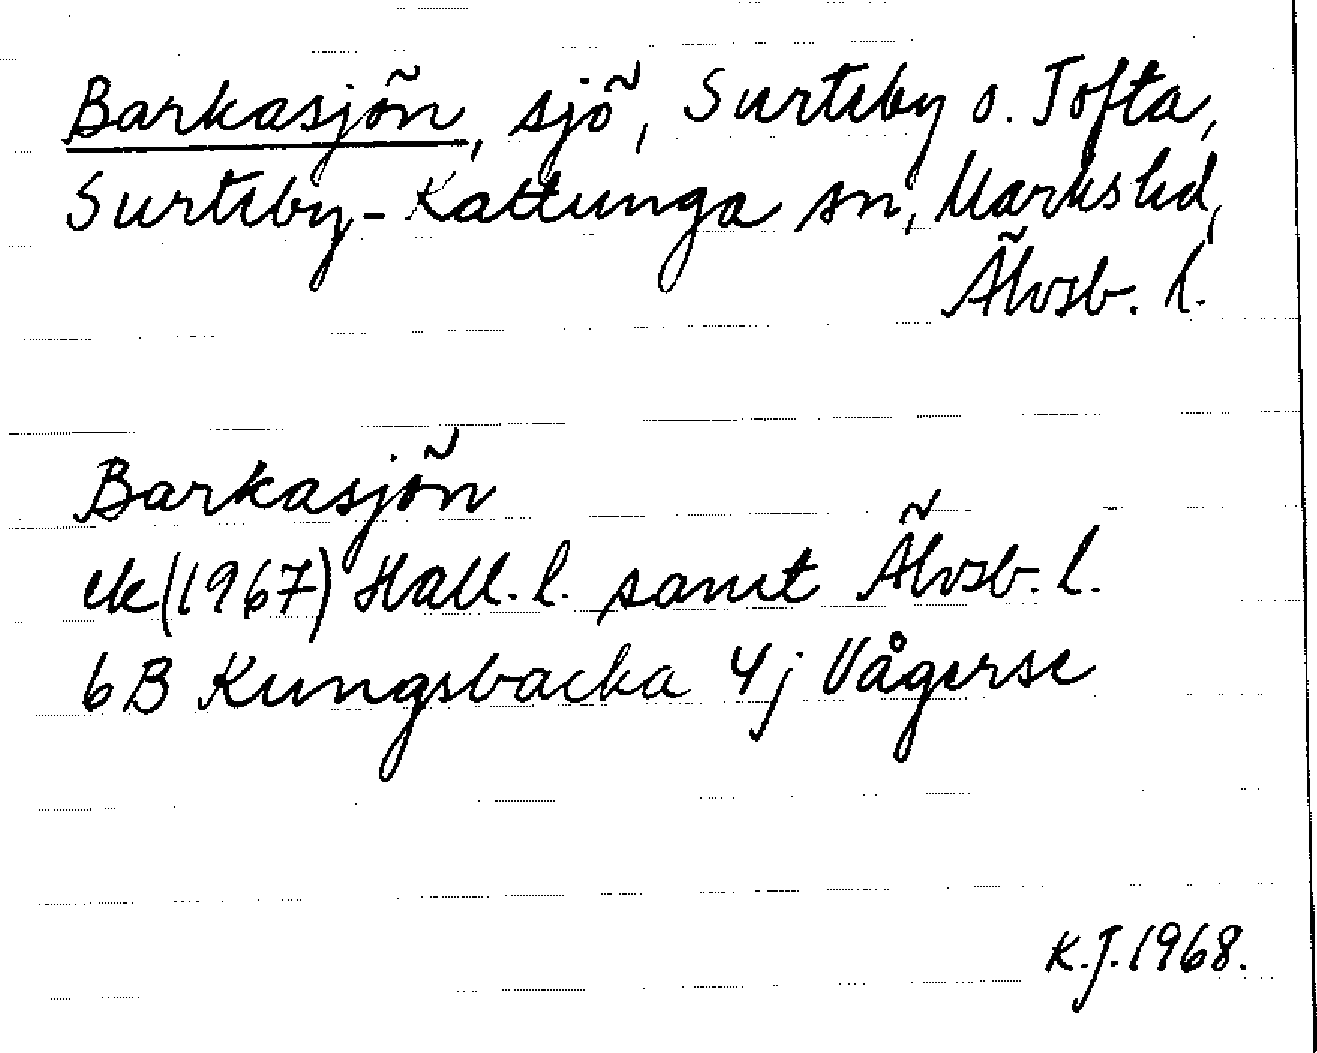 Barkasjön, sjö, Surteby o. Tofta,
Surteby-Kattunga sn, Marks hd,
Älvsb. l.
Barkasjön
ek (1967) Hall. l. samt Älvsb. l.
6B Kungsbacka 4j Vågerse
K.J. 1968.